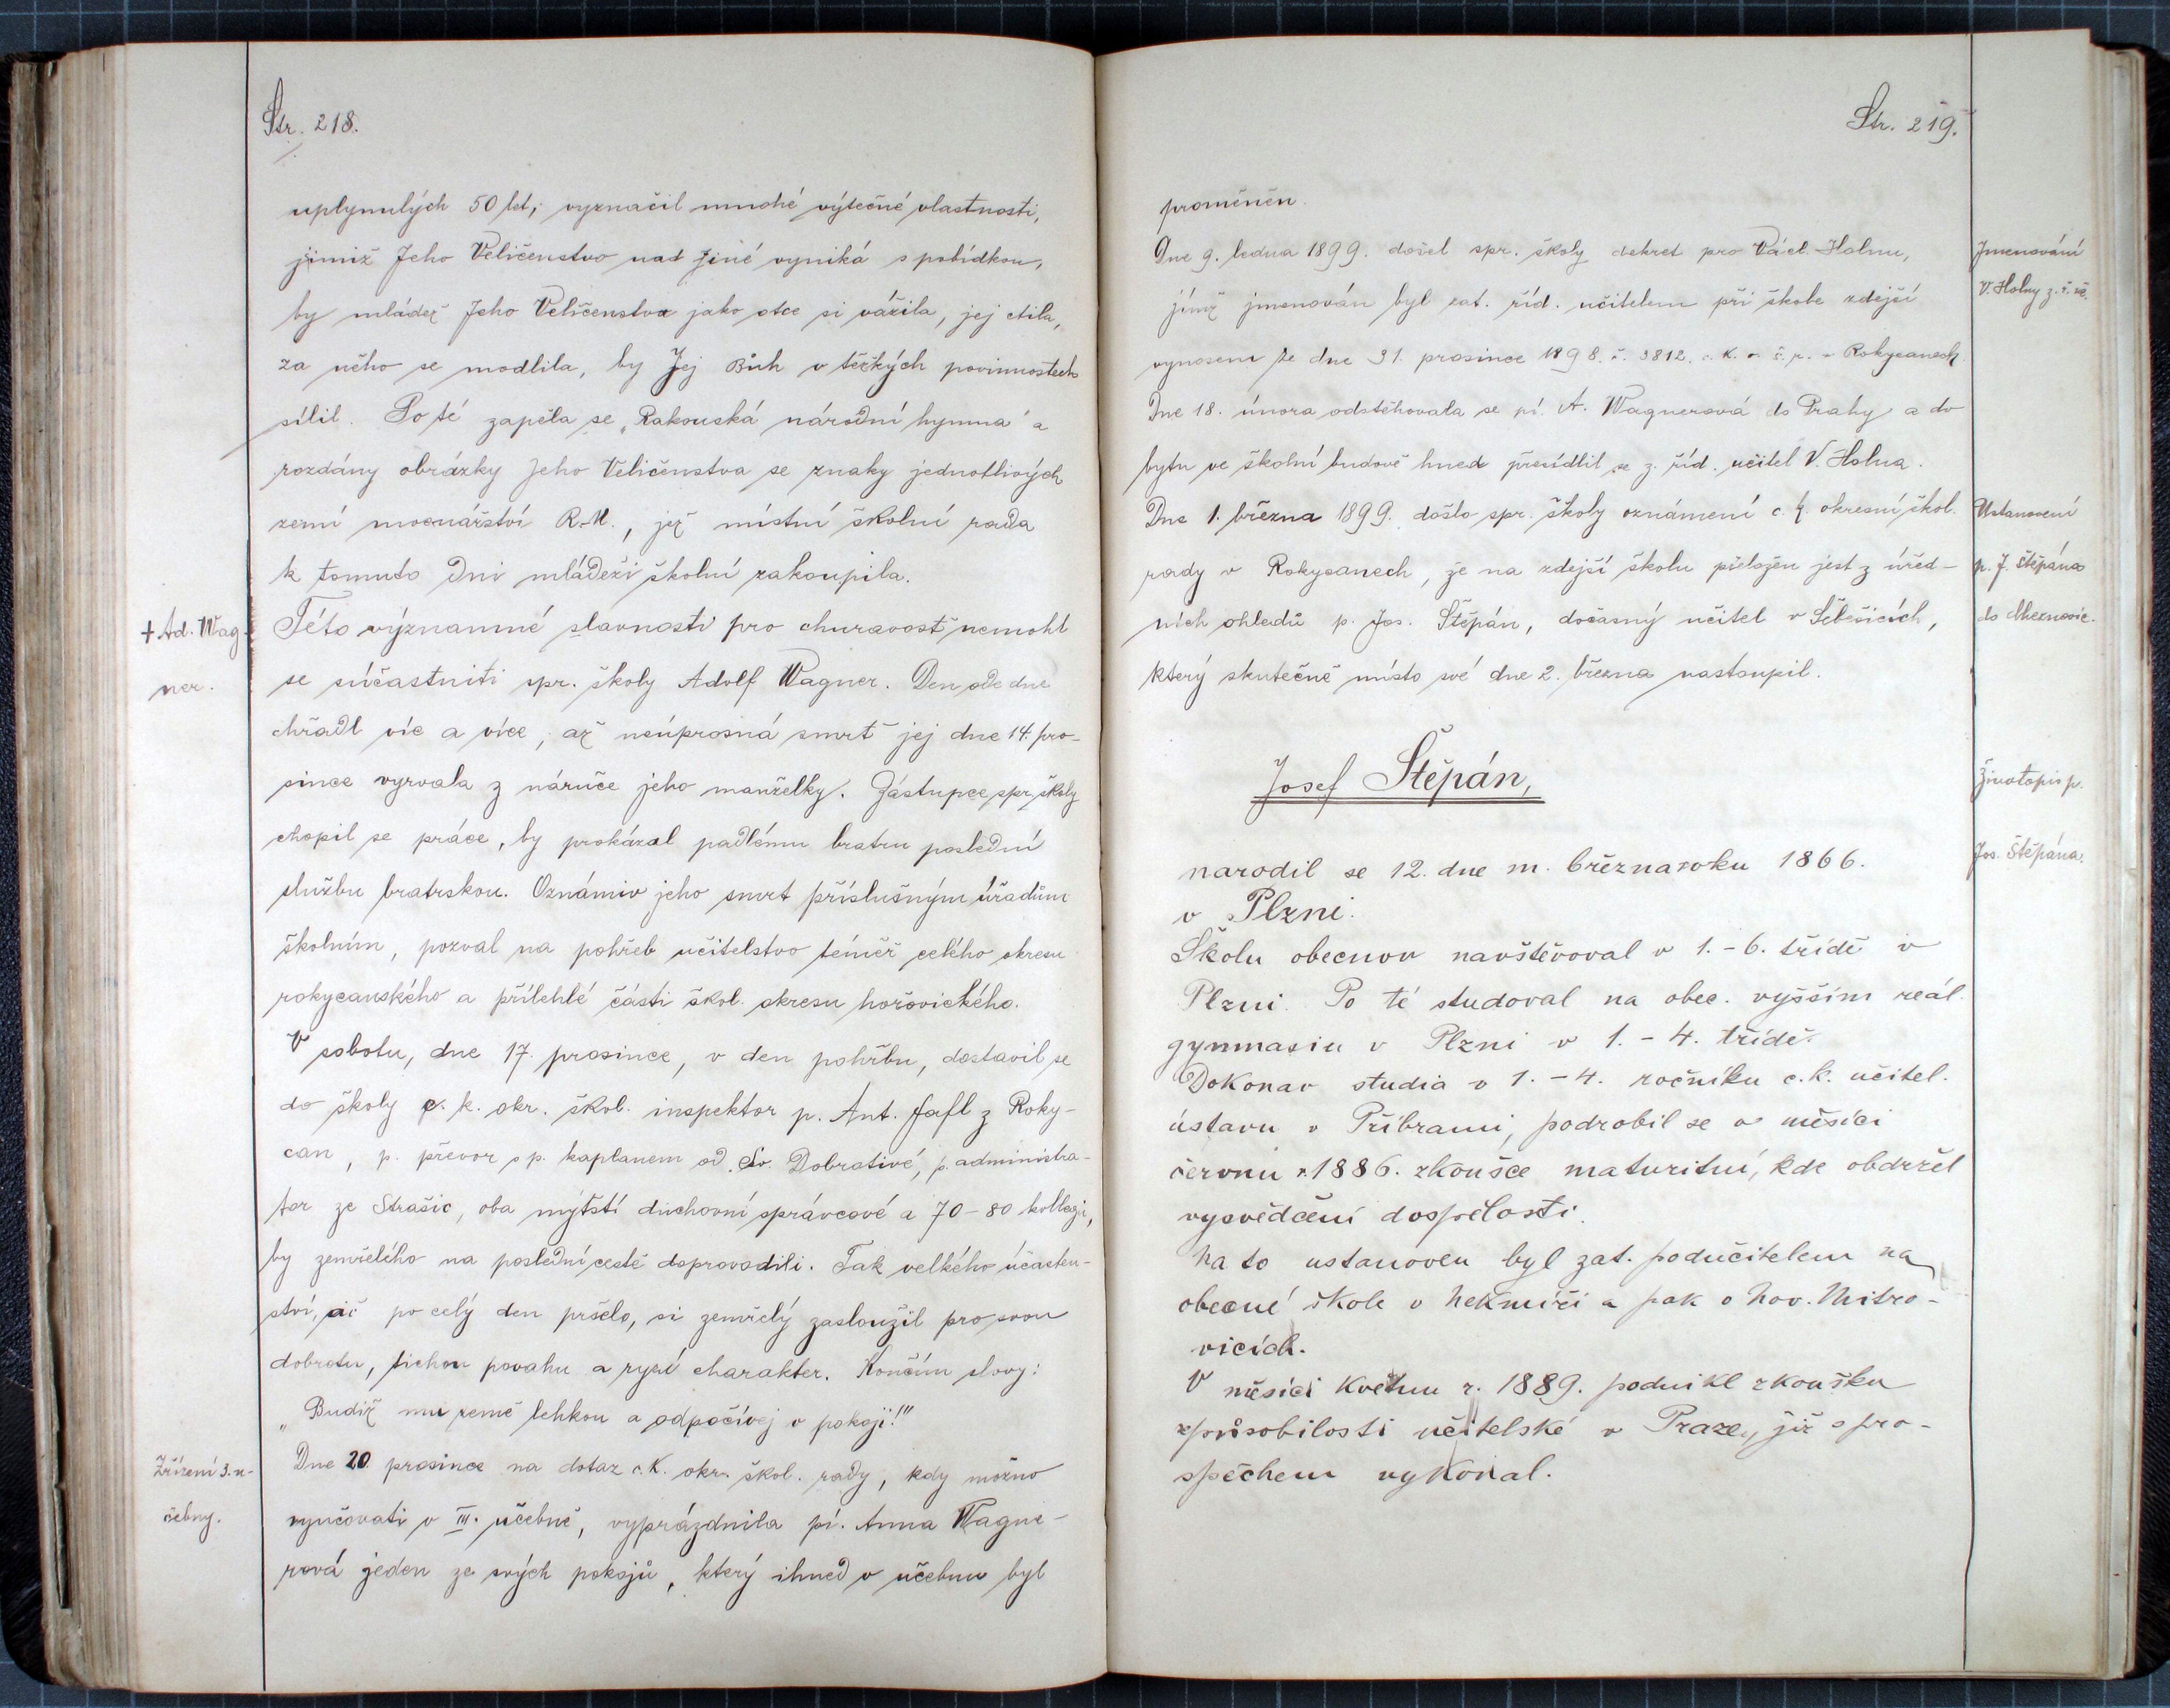 Str. 218.
uplynulých 50 let; vyznačil mnohé výtečné vlastnosti,
jimiž Jeho Veličenstvo nad jiné vyniká s pobídkou,
by mládež Jeho Veličenstva jako otce si vážila, jej ctila,
za něho se modlila, by Jej Bůh v těžkých povinnostech
sílil. Po té zapěla se „Rakouská národní hymna" a
rozdány obrázky Jeho Veličenstva se znaky jednotlivých
zemí mocnářství R.-U., jež místní školní rada
k tomuto dni mládeži školní zakoupila.
+ Ad. Wag-
ner.
Této významné slavnosti pro churavosť nemohl
se súčastniti spr. školy Adolf Wagner. Den ode dne
chřadl víc a více, až neúprosná smrť jej dne 14. pro-
since vyrvala z náruče jeho manželky. Zástupce spr. školy
chopil se práce, by prokázal padlému bratru poslední
službu bratrskou. Oznámiv jeho smrt příslušným úřadům
školním, pozval na pohřeb učitelstvo téměř celého okresu
rokycanského a přilehlé části škol. okresu hořovického.
V sobotu, dne 17. prosince, v den pohřbu, dostavil se
do školy c. k. okr. škol. inspektor p. Ant. Jafl z Roky-
can, p. převor s p. kaplanem od Sv. Dobrotivé, p. administra-
tor ze Strašic, oba mýtští duchovní správcové a 70-80 kollegů,
by zemřelého na poslední cestě doprovodili. Tak velkého účasten-
ství, ač po celý den pršelo, si zemřelý zasloužil pro svou
dobrotu, tichou povahu a ryzí charakter. Končím slovy:
„Budiž mu země lehkou a odpočívej v pokoji!"
Zřízení 3. u-
čebny.
Dne 20. prosince na dotaz c. k. okr. škol. rady, kdy možno
vyučovati v III. učebně, vyprázdnila pí. Anna Wagne-
rová jeden ze svých pokojů, který ihned v učebnu byl
Str. 219.
proměněn.
Dne 9. ledna 1899. došel spr. školy dekret pro Václ. Holnu,
jímž jmenován byl zat. říd. učitelem při škole zdejší
vynosem ze dne 31. prosince 1898. č. 3812. c. k. o. š. r. v Rokycanech.
Jmenování
V. Holny z. ř. uč.
Dne 18. února odstěhovala se pí. A. Wagnerová do Prahy a do
bytu ve školní budově hned přesídlil se z. říd. učitel V. Holna.
Dne 1. března 1899. došlo spr. školy oznámení c. k. okresní škol.
rady v Rokycanech, že na zdejší školu přeložen jest z úřed-
ních ohledů p. Jos. Štěpán, dočasný učitel v Sebešicích,
který skutečně místo své dne 2. března nastoupil.
Ustanovení
p. J. Štěpána
do Cheznovic.
Josef Štěpán,
Životopis p.
Jos. Štěpána.
narodil se 12. dne m. března roku 1866.
v Plzni.
Školu obecnou navštěvoval v 1.-6. třídě v
Plzni. Po té studoval na obec. vyšším reál.
gymnasiu v Plzni v 1.-4. třídě.
Dokonav studia v 1.-4. ročníku c. k. učitel.
ústavu v Příbrami, podrobil se v měsíci
červnu r. 1886. zkoušce maturitní, kde obdržel
vysvědčení dospělosti.
Na to ustanoven byl zat. podučitelem na
obecné škole v Nekmíři a pak v Nov. Mitro-
vicích.
V měsíci květnu r. 1889. podnikl zkoušku
způsobilosti učitelské v Praze, již s pro-
spěchem vykonal.